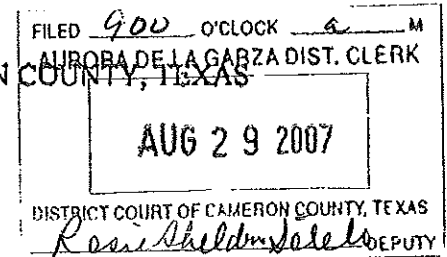 FILED 9:00 O'CLOCK a M
AURORA DE LA GARZA DIST. CLERK
N COUNTY, TEXAS
AUG 29 2007
DISTRICT COURT OF CAMERON COUNTY, TEXAS
Rosie Sheldon DEPUTY